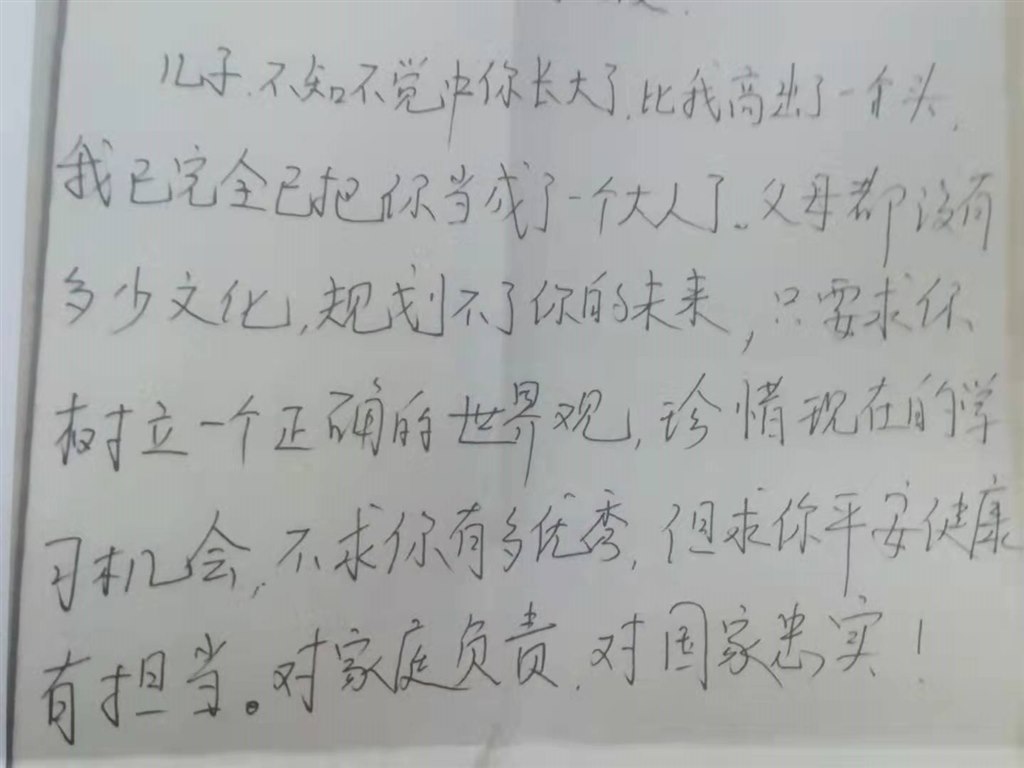 儿子.不知不觉中你长大了.比我高出了一个头.
我已完全已把你当成了一个大人了。父母都没有
多少文化,规划不了你的未来,只要求你
树立一个正确的世界观,珍惜现在的学
习机会,不求你有多优秀,但求你平安健康
有担当。对家庭负责.对国家忠实!